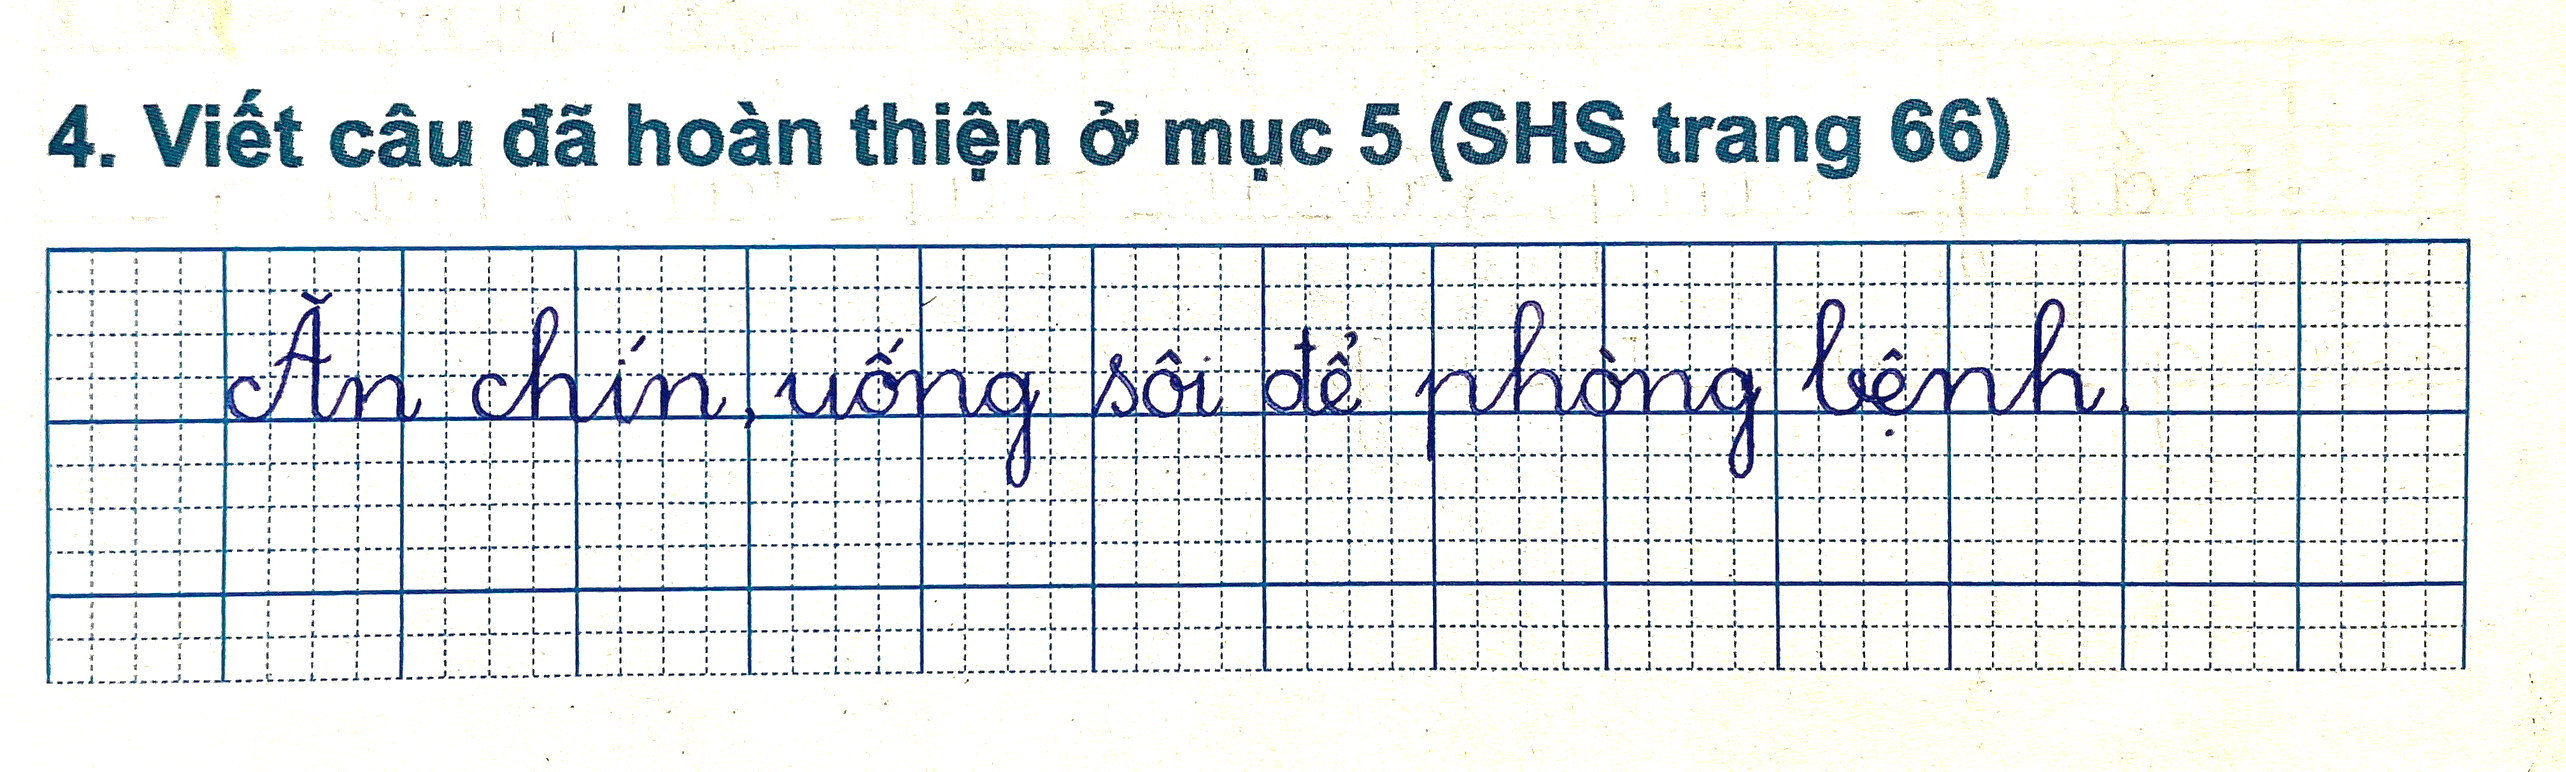 4. Viết câu đã hoàn thiện ở mục 5 (SHS trang 66)
Ăn chín, uống sôi để phòng bệnh.